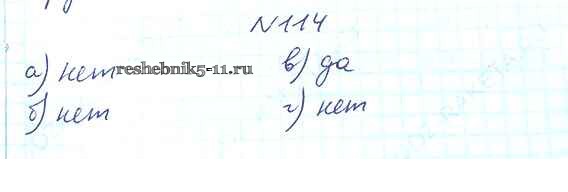 №114
а) нет reshebnik5-11.ru в) да
б) нет г) нет